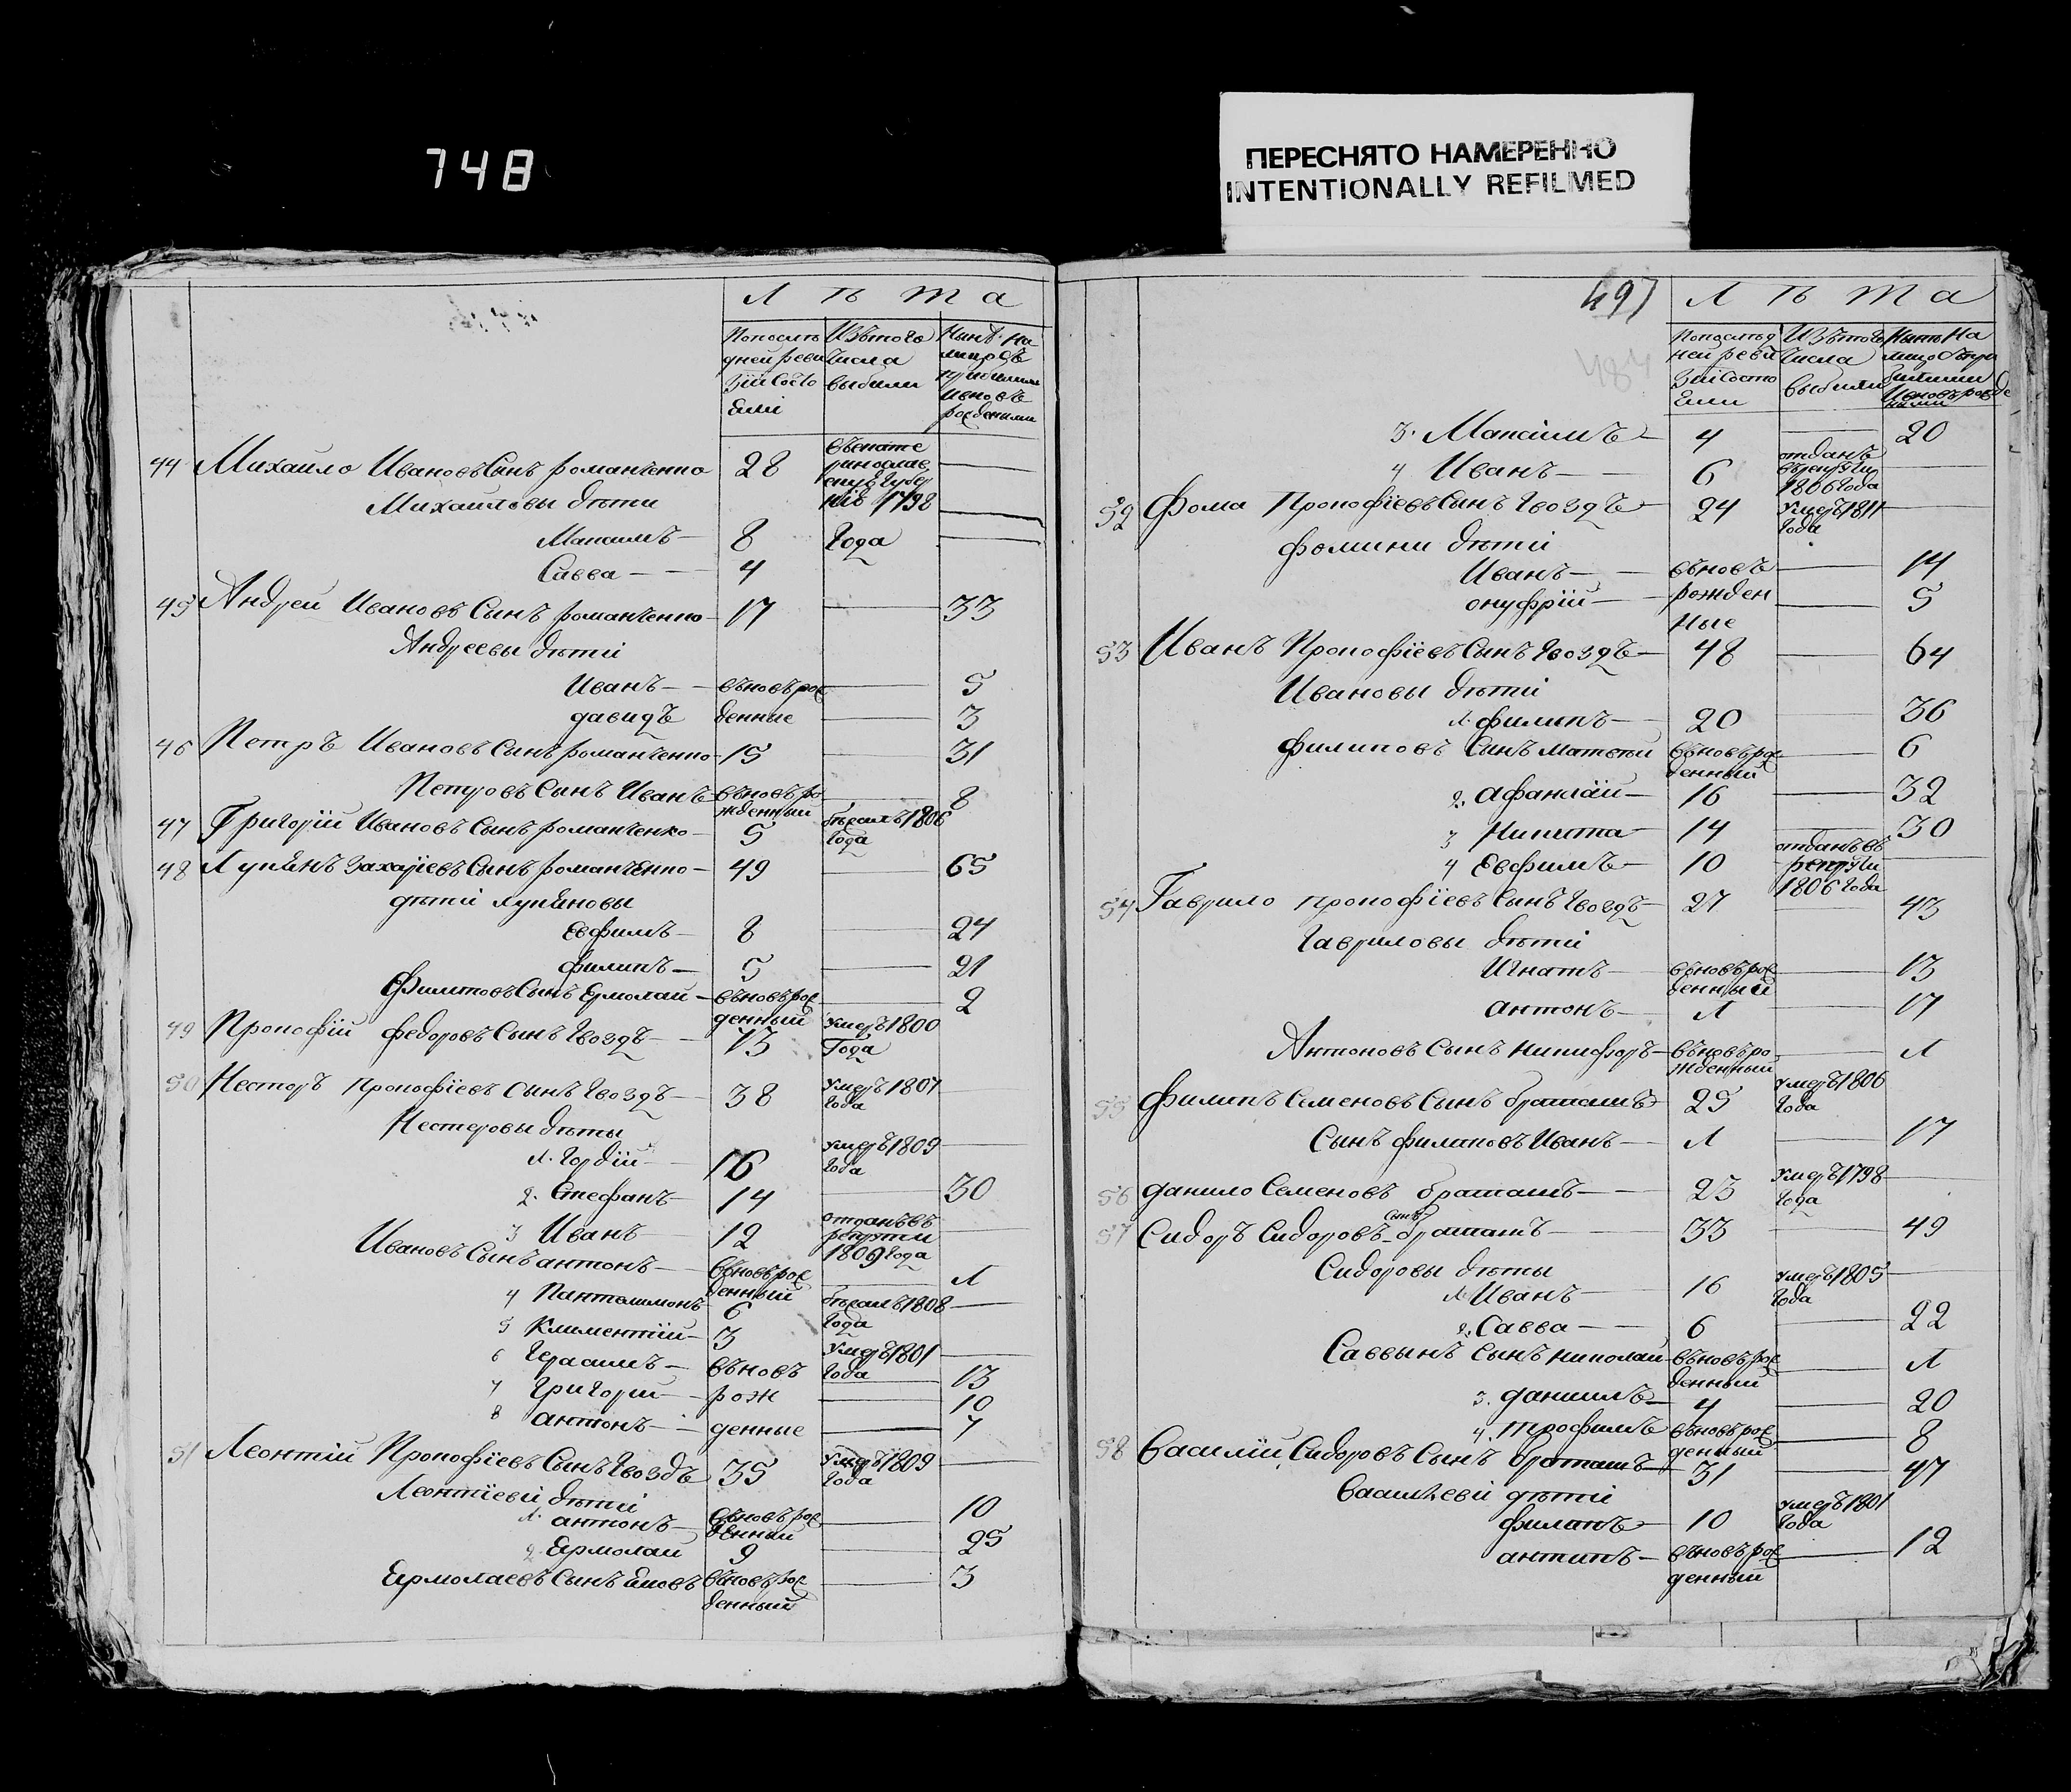 748
ПЕРЕСНЯТО НАМЕРЕННО
INTENTIONALLY REFILMED
Л ѣ т а
Попослѣ Изътого Нынѣ на
дней реви числа лицо съ
зіи состо выбыли прибылыми
яли ивновь
рожденными
44 Михайло Ивановъ Сынъ романченко 28 въекате
ринослав
скую губер
нію 1798
Михайловы дѣти
Максимъ 8 Года
Савва 4
45 Андрей Ивановъ Сынъ романченко 17 33
Андреевы дѣти
Иванъ вновь рож 5
давидъ денные 3
46 Петръ Ивановъ Сынъ романченко 15 31
Петровъ Сынъ Иванъ вновь ро 8
жденный
47 Григорій Ивановъ Сынъ романченко 5 бѣжалъ 1806
Года
48 Лукянъ Захарiевъ Сынъ романченко 49 65
дѣти лукяновы
Евфимъ 8 24
филипъ 5 21
Филиповъ Сынъ Ермолай вновь рож 2
денный
49 Прокофій федоровъ Сынъ Гвоздь 73 умеръ 1800
Года
50 Несторъ Прокофіевъ Сынъ Гвоздь 38 умеръ 1807
Года
Нестеровы дѣты
1. Гордій 16 умеръ 1809
Года
2. Стефанъ 14 30
3 Иванъ 12 отданъ въ
рекруты
1809 Года
Ивановъ Сынъ антонъ вновь рож 1
денный
4 Пантелимонъ 6 бѣжалъ 1808
Года
5 Климентій 3 умеръ 1801
Года
6 Герасимъ вновь 13
7 Григорій рож 10
8 антонъ денные 7
51 Леонтій Прокофіевъ Сынъ Гвоздъ 35 умеръ 1809
Года
Леонтіеві дѣти
1. антонъ вновь рож 10
денный
2 Ермолай 9 25
Ермолаевъ Сынъ вновь рож 3
денный
497
484
Л ѣ т а
Попослѣд Изътого Нынѣ на
ней реви числа лицо съ при
зіи состо выбыли былыми
яли ивновь рожде
ными
3. Максимъ 4 20
4 Иванъ 6 отданъ
въ рекруты
1806 Года
52 Фома Прокофіевъ Сынъ Гвоздъ 24 умеръ 1811
Года
фомини дѣти
Иванъ вновь 14
онуфрій рожден 5
ные
53 Иванъ Прокофіевъ Сынъ Гвоздъ 48 64
Ивановы дѣти
1. филипъ 20 36
филиповъ Сынъ матвей вновь рож 6
денный
2. афанасiй 16 32
3 Никита 14 30
4 Евфимъ 10 отданъ въ
рекруты
1806 Года
54 Гаврило прокофіевъ Сынъ Гвоздъ 27 43
Гавриловы дѣти
Игнатъ вновь рож 13
денный
антонъ 1 17
Антоновъ Сынъ никифоръ вновь ро 1
жденный
55 филипъ Семеновъ Сынъ браташъ 25 умеръ 1806
Года
Сынъ филиповъ Иванъ 1 17
56 данило Семеновъ браташъ 23 умеръ 1798
Года
57 Сидоръ Сидоровъ Сынъ браташъ 33 49
Сидоровы дѣты
1. Иванъ 16 умеръ 1805
Года
2. Савва 6 22
Саввынъ Сынъ николай вновь рож 1
денный
3. даниилъ 4 20
4. трофимъ вновь рож 8
денный
58 Василій Сидоровъ Сынъ браташъ 31 47
Василіеві дѣти
филипъ 10 умеръ 1801
Года
антипъ вновь рож 12
денный